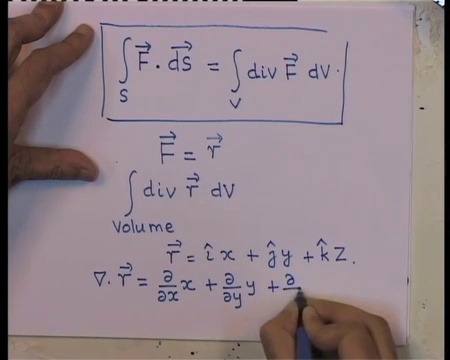 ∫_S F⃗ · dS⃗ = ∫_V div F⃗ dV.
F⃗ = r⃗
∫_Volume div r⃗ dV
r⃗ = î x + ĵ y + k̂ z.
∇. r⃗ = ∂/∂x x + ∂/∂y y + ∂